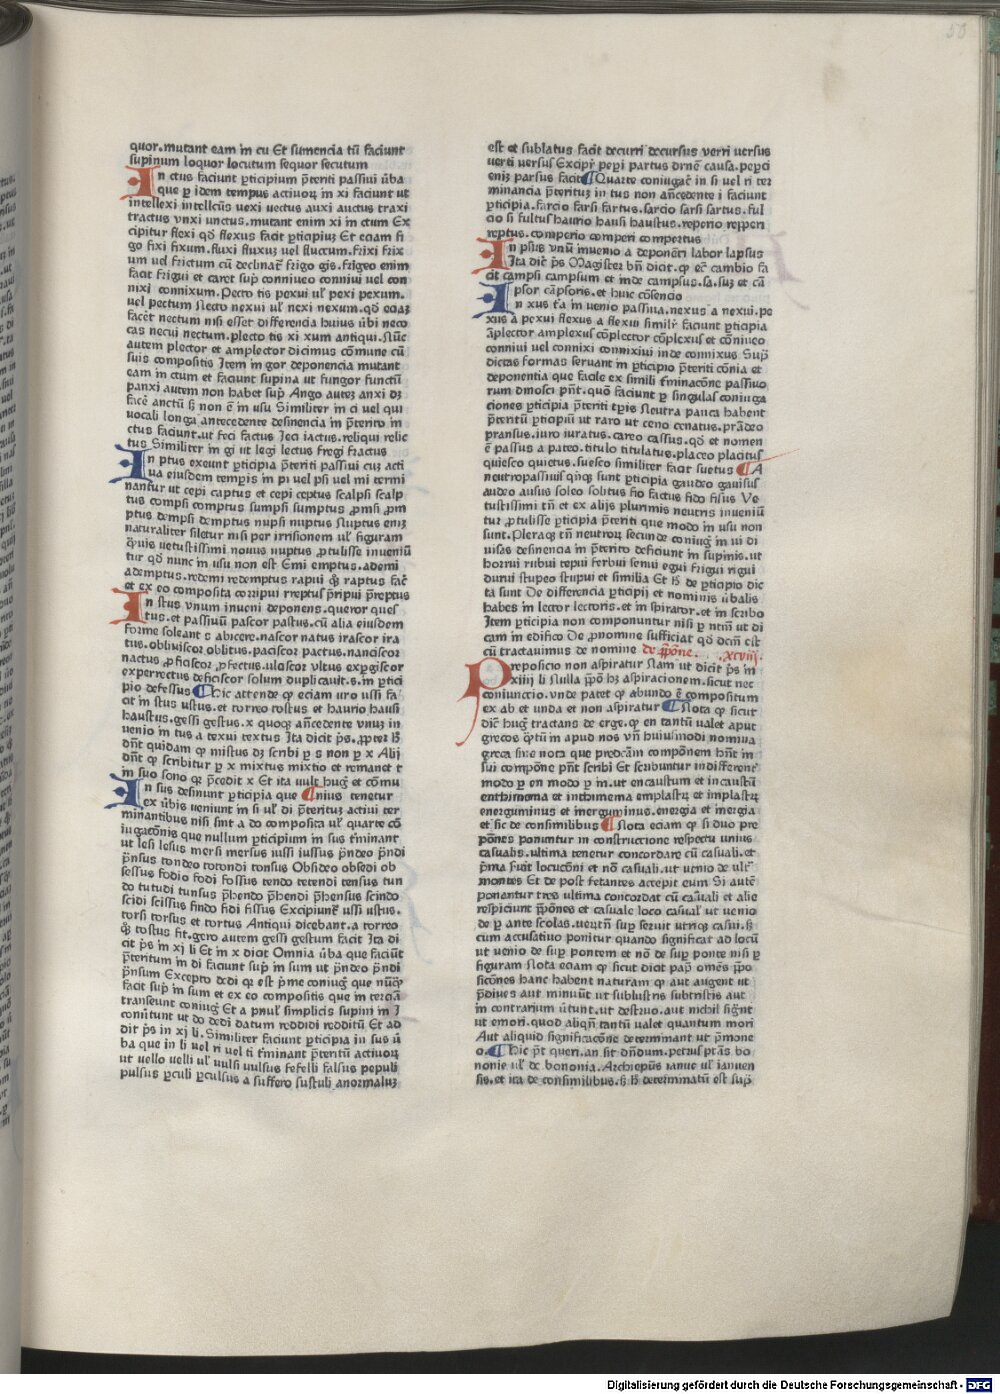 50
quor.mutant eam in cu Et sumencia tũ faciunt
supinum loquor locutum sequor secutum
In ctus faciunt ꝑticipium p̃teriti passiui ũba
que ꝑ idem tempus actiuoꝝ in xi faciunt ut
intellexi intellc̃us uexi uectus auxi auctus traxi
tractus vnxi unctus.mutant enim xi in ctum Ex
cipitur flexi qđ flexus facit ꝑticipiuȝ Et eciam fi
go fixi fixum.fluxi fluxuȝ uel fluctum.frixi frix
um uel frictum cũ declinat̃ frigo gis.frigeo enim
facit frigui et caret sup̃ conniueo conniui uel con
nixi connixum.Pecto tis pexui ul' pexi pexum.
uel pectum Necto nexui ul' nexi nexum.qđ eciaȝ
facet̃ nectum nisi esset differencia huius ũbi neco
cas necui nectum.plecto tis xi xum antiqui.Nũc
autem plector et amplector dicimus cõmune cũ
suis compositis Item in gor deponencia mutant
eam in ctum et faciunt supina ut fungor functũ
panxi autem non habet sup̃ Ango auteȝ anxi dȝ
face̾ anctũ sȝ non ẽ in usu Similiter in ci uel qui
vocali longa antecedente desinencia in p̃terito in
ctus faciunt.ut feci factus Jeci iactus.reliqui relic
tus Similiter in gi ut legi lectus fregi fractus
In ptus exeunt ꝑticipia p̃teriti passiui cuȝ acti
ua eiusdem tempris in pi uel psi uel mi termi
nantur ut cepi captus et cepi ceptus scalpsi scalp
tus compsi comptus sumpsi sumptus ꝓmsi ꝓm
ptus dempsi demptus nupsi nuptus Nuptus eniȝ
naturaliter siletur nisi per irrisionem ul' figuram
q̃uis uetustissimi nouus nuptus ꝓtulisse inueniũ
tur qđ nunc in usu non est Emi emptus.ademi
ademptus.redemi redemptus rapui q̃ raptus fac̃
et ex eo composita corripui rreptus p̃ripui p̃reptus
In stus vnum inueni deponens.queror ques
tus.et passiuũ pascor pastus.cũ alia eiusdem
forme soleant s abicere.nascor natus irascor ira
tus.obliuiscor oblitus.paciscor pactus.nanciscor
nactus ꝓficiscor ꝓfectus.ulciscor vltus expgiscor
experrectus deficiscor solum duplicauit.s.in ꝑtici
pio defessus Hic attende ꝙ eciam uro ussi fa
cit in stus ustus.et torreo tostus et haurio hausi
haustus.gessi gestus.x quoqȝ añcedente vnuȝ in
uenio in tus a texui textus Ita dicit p̃s.ꝓpter hđ
dñt quidam ꝙ mistus dȝ scribi ꝑ s non ꝑ x Alij
dñt ꝙ scribitur ꝑ x mixtus mixtio et remanet t
in suo sono qȝ p̃cedit x Et ita vult hug̃ et cõmu
In sus desinunt ꝑticipia que nius tenetur
ex ũbis veniunt in si ul' di p̃teritꝝ actiui ter
minantibus nisi sint a do composita ul' quarte cõ
iugacõnis que nullum ꝑticipium in sus t̃minant
ut lesi lesus mersi mersus iussi iussus p̃ndeo p̃ndi
p̃nsus tondeo totondi tonsus Obsideo obsedi ob
sessus fodio fodi fossus tendo tetendi tensus tun
do tutudi tunsus p̃hendo p̃hendi p̃hensus scindo
scidi scissus findo fidi fissus Excipiunt̃ ussi ustus.
torsi torsus et tortus Antiqui dicebant.a torreo
q̃ tostus fit.gero autem gessi gestum facit Ita di
cit p̃s in xj li Et in x dicit Omnia ũba que faciũt
p̃teritum in di faciunt sup̃ in sum ut p̃ndeo p̃ndi
p̃nsum Excepto dedi qȝ est p̃me coniug̃ que nũqȝ
facit sup̃ in sum et ex eo compositis que in terciã
transeunt coniug̃ Et a pnul' simplicis supini in J
conũtunt ut do dedi datum reddidi redditũ Et ad
dit p̃s in xj li. Similiter faciunt ꝑticipia in sus ũ
ba que in li uel ri uel ti t̃minant p̃teritũ actiuoꝝ
ut uello uelli ul' uulsi uulsus fefelli falsus pepuli
pulsus ꝑculi ꝑculsus a suffero sustuli anormaluȝ
est et sublatus facit decurri decursus verri uersus
uerti uersus Excipit̃ peꝑi partus dr̃ne causa.peꝑci
eniȝ parsus facit Quarte coniugac̃ in si uel ri ter
minancia p̃teritꝝ in tus non añcedente i faciunt
ꝑticipia.farcio farsi fartus.sarcio sarsi sartus.ful
cio si fultus haurio hausi haustus.reperio reꝑperi
reptus.comperio comperi compertus
In psus vnũ inuenio a deponeñ labor lapsus
Ita dic̃ p̃s Magister bñ dicit.ꝙ eẽ cambio fa
cit campsi campsum et inde campsus.sa.suȝ et cã
psor cãpsoris.et huic cõsencio
In xus t̃a in uenio passiua.nexus a nexui.pe
xus a pexui flexus a flexui simil'r faciunt ꝑticipia
ãplector amplexus cõplector cõplexus et cõniueo
conniui uel connixi connixiui inde connixus Sup̃
dictas formas seruant in ꝑticipio p̃teriti cõnia et
deponentia que facile ex simili t̃minacõne passiuo
rum dinosci pñt.quõ faciunt ꝑ singulas coniuga
ciones ꝑticipia p̃teriti tp̃is Neutra pauca habent
p̃teritũ ꝑticipiũ ut raro ut ceno cenatus.p̃rãdeo
pransus.iuro iuratus.careo cassus.qđ et nomen
ẽ passus a pateo.titulo titulatus.placeo placitus
quiesco quietus.suesco similiter facit suetus A
neutropassiuis q̃nqȝ sunt ꝑticipia gaudeo gauisus
audeo ausus soleo solitus fio factus fido fisus Ve
tustissimi tñ et ex alijs plurimis neutris inueniũ
tur ꝓtulisse ꝑticipia p̃teriti que modo in usu non
sunt.Pleraqȝ tñ neutroꝝ secunde coniug̃ in ui di
uisas desinencia in p̃terito deficiunt in supinis.ut
horrui rubui tepui ferbui senui egui frigui rigui
durui stupeo stupui et similia Et hđ de ꝑticipio dic
ta sunt De differencia ꝑticipij et nominis ũbalis
habes in lector lectoris.et in spirator.et in scribo
Item ꝑticipia non componuntur nisi ꝑ ntm̃ ut di
cam in edifico De ꝓnomine sufficiat qđ dcm̃ est
cũ tractauimus de nomine de p̃põne. .xcviij.
Preposicio non aspiratur Nam ut dicit p̃s in
xiiij li Nulla p̃põ hȝ aspiracionem.sicut nec
coniunccio.vnde patet ꝙ abundo ẽ compositum
ex ab et unda et non aspiratur Nota ꝙ sicut
dic̃ hug̃ tractans de erge.ꝙ en tantũ ualet aput
grecos q̃tũ in apud nos vñ huiusmodi nomina
greca siue nota que predcãm compõnem hñt in
sui compõne pñt scribi Et scribuntur indifferent̃
modo ꝑ en modo ꝑ in.ut encaustum et incaustũ
enthimema et inthimema emplastꝝ et implastꝝ
energuminus et inerguminus.energia et inergia
et sic de consimilibus Nota eciam ꝙ si duo pre
põnes ponuntur in construccione respectu unius
casualis.ultima tenetur concordare cũ casuali.et
p̃ma fuit locucõni et nõ casuali.ut uenio de ult'
montes Et de post fetantes accepit eum Si autẽ
ponantur tres ultima concordat cũ casuali et alie
respiciunt p̃põnes et casuale loco casual' ut uenio
de ꝑ ante scolas.ueꝝtñ sup̃ seruit utriqȝ casui.sȝ
cum accusatiuo ponitur quando significat ad locũ
ut uenio de sup̃ pontem et nõ de sup̃ ponte nisi ꝑ
figuram Nota eciam ꝙ sicut dicit pap̃ om̃es p̃po
sicõnes hanc habent naturam ꝙ aut augent ut
p̃diues aut minuũt ut sublustris subtristis aut
in contrarium ũtunt.ut destruo.aut nichil sig̃nt
ut emori.quod aliqñ tantũ ualet quantum mori
Aut aliquid significacõne determinant ut p̃mone
o. Hic p̃t queri.an sit dñdum.petrus p̃tãs bo
nonie ul' de bononia.Archiep̃us ianue ul' ianuen
sis.et ita de consimilibus.sȝ hđ determinatũ est sup̃
Digitalisierung gefördert durch die Deutsche Forschungsgemeinschaft - DFG